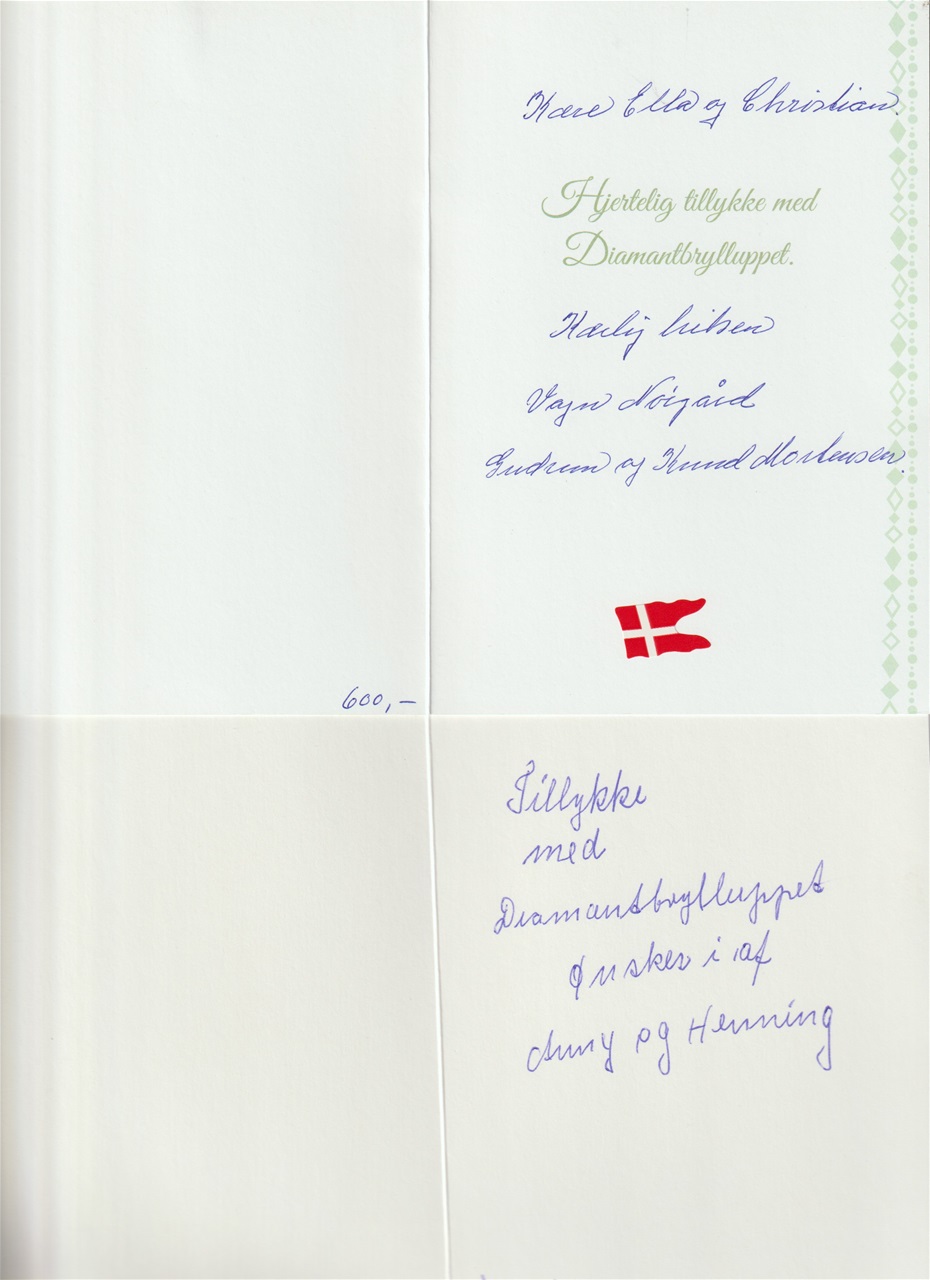 Kære Ella og Christian.
Hjertelig tillykke med
Diamantbrylluppet.
Kærlig hilsen
Vagn Nörgård
Gudrun og Knud Mortensen.
600,-
Tillykke
med
Diamantbrylluppet
Ønskes i af
Anny og Henning